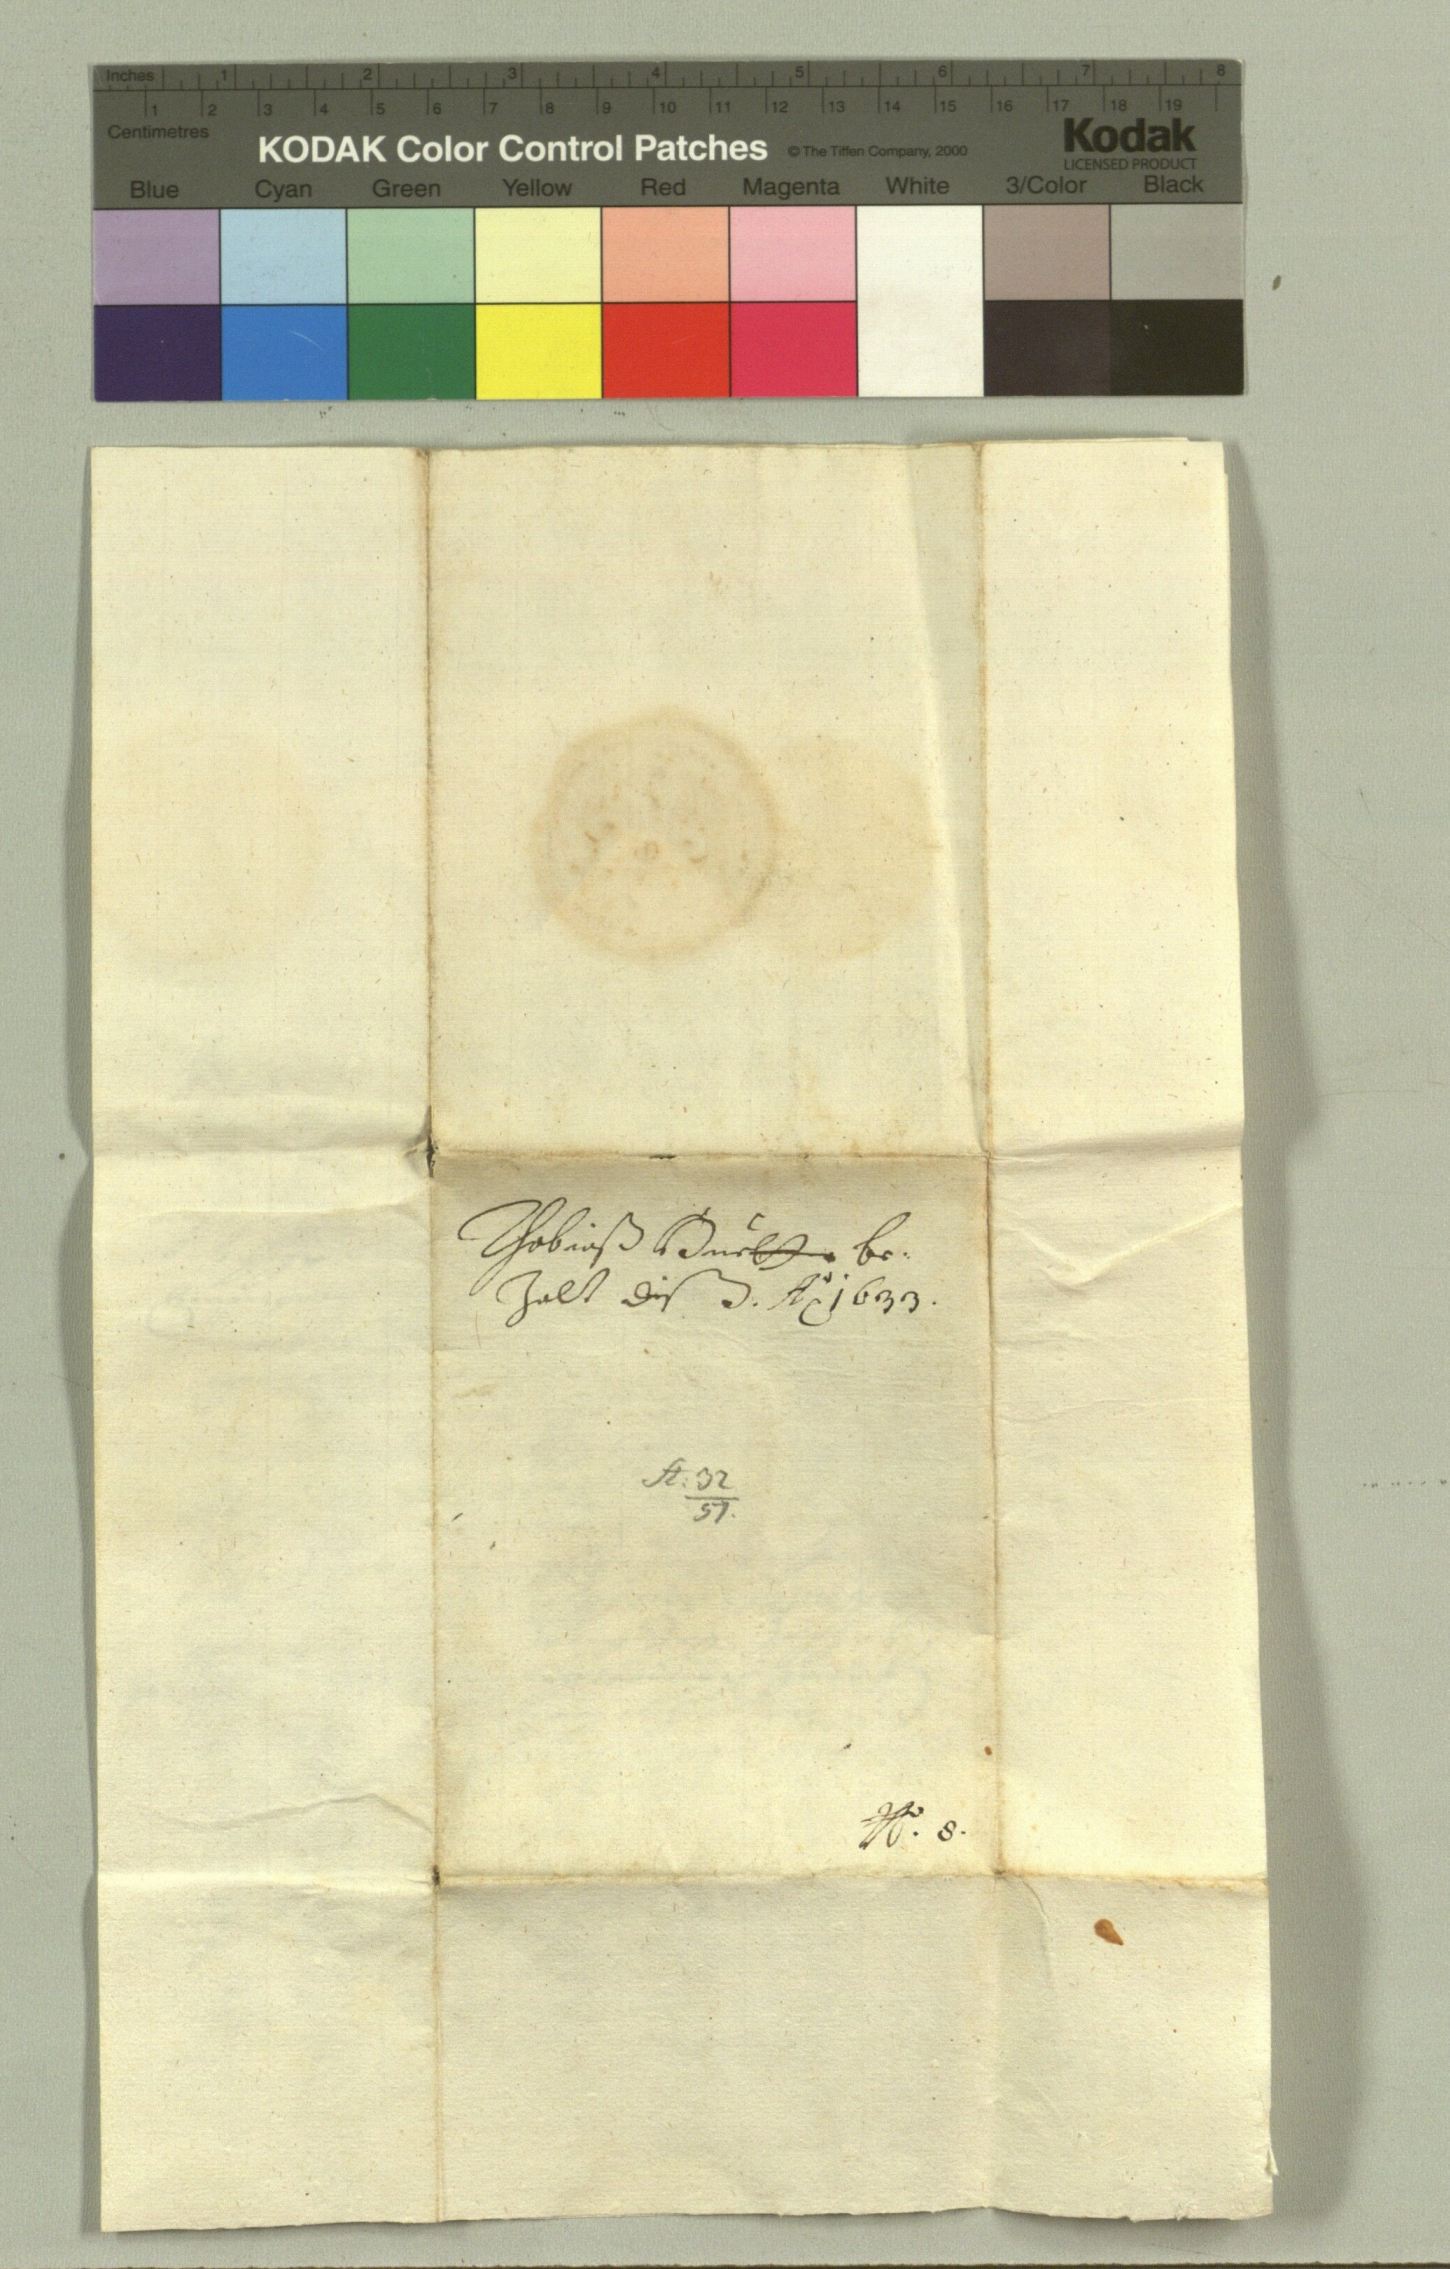 Inches 1 2 3 4 5 6 7 8
1 2 3 4 5 6 7 8 9 10 11 12 13 14 15 16 17 18 19
Centimetres
KODAK Color Control Patches © The Tiffen Company, 2000 Kodak
LICENSED PRODUCT
Blue Cyan Green Yellow Red Magenta White 3/Color Black
Thobiaß be:
Zalt diß 3. Aō 1633.
A: 32
57.
No. 8.